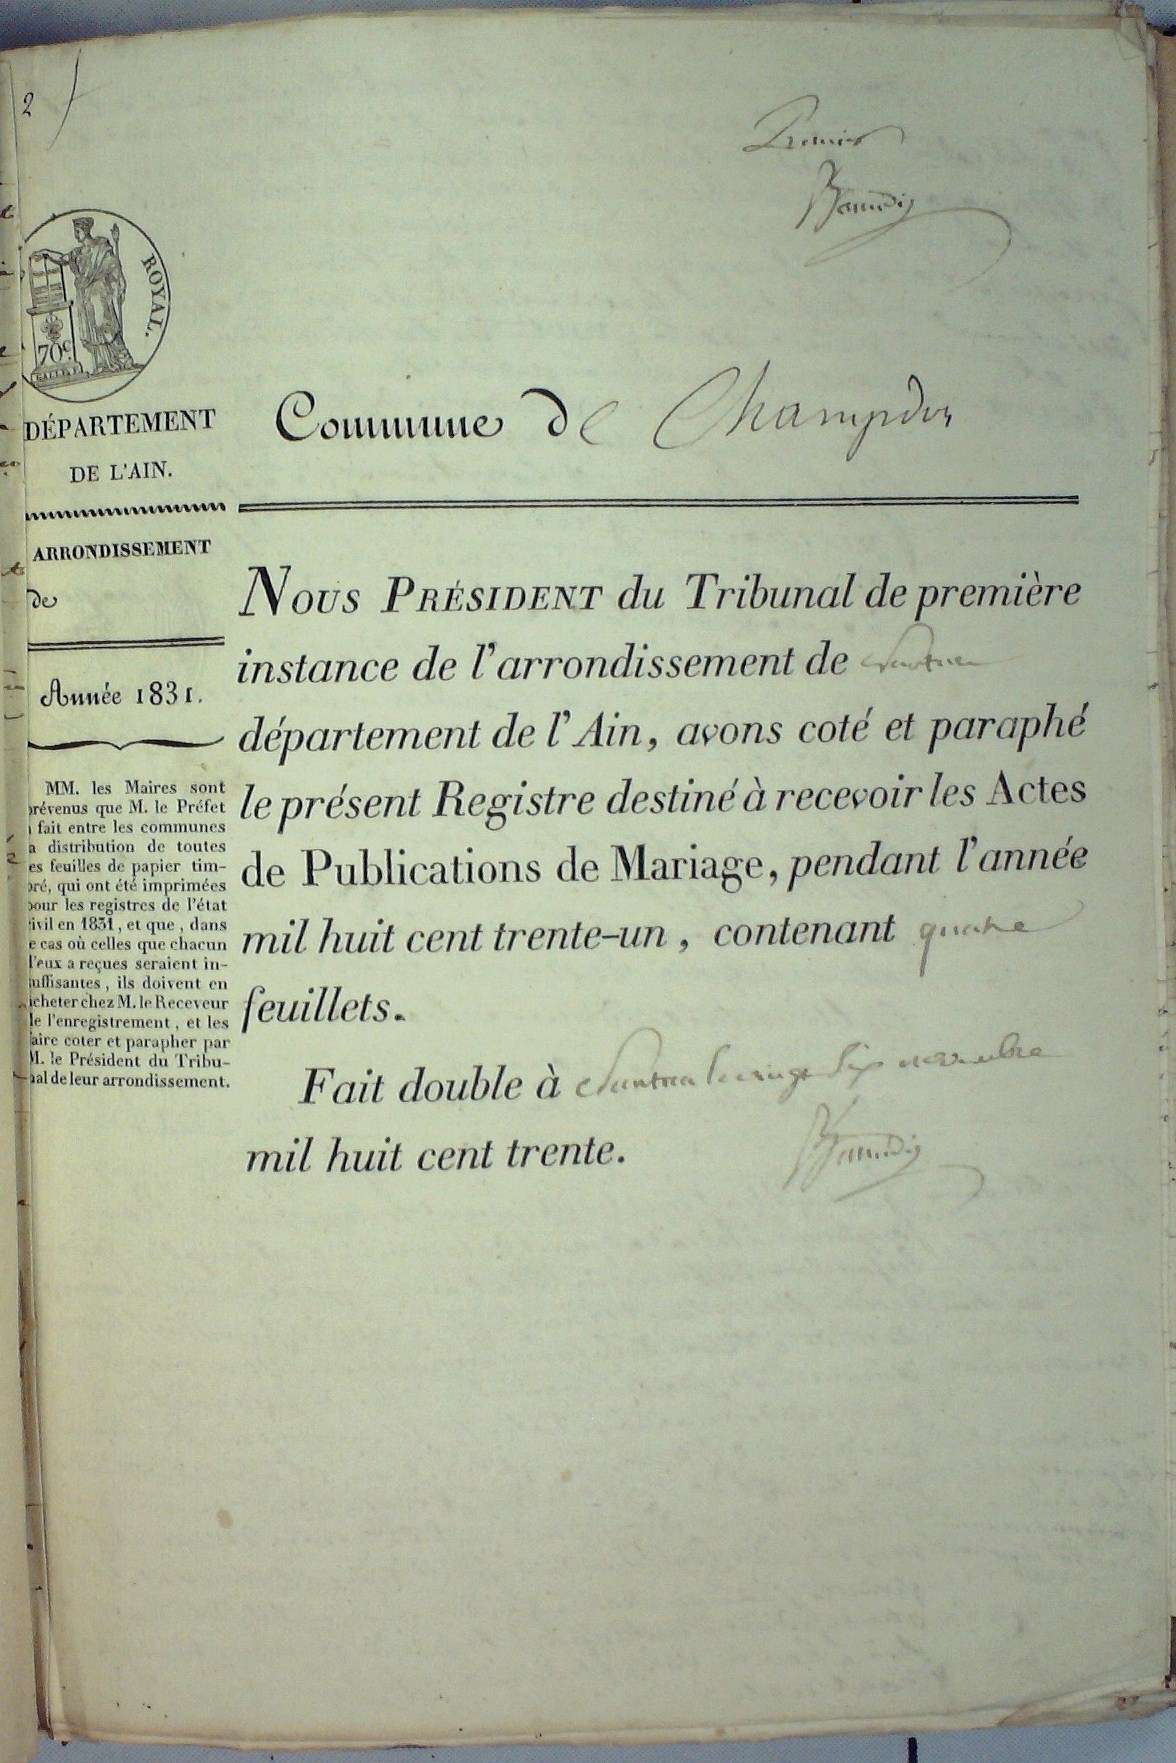 2
Premier
ROYAL.
70c
DÉPARTEMENT
DE L'AIN.
Commune de Champdor
ARRONDISSEMENT
de
Année 1831.
MM. les Maires sont
prévenus que M. le Préfet
fait entre les communes
a distribution de toutes
es feuilles de papier tim-
bré, qui ont été imprimées
pour les registres de l'état
civil en 1831, et que, dans
e cas où celles que chacun
d'eux a reçues seraient in-
suffisantes, ils doivent en
acheter chez M. le Receveur
de l'enregistrement, et les
faire coter et parapher par
M. le Président du Tribu-
nal de leur arrondissement.
NOUS PRÉSIDENT du Tribunal de première
instance de l'arrondissement de Nantua
département de l'Ain, avons coté et paraphé
le présent Registre destiné à recevoir les Actes
de Publications de Mariage, pendant l'année
mil huit cent trente-un, contenant quatre
feuillets.
Fait double à Nantua le vingt six novembre
mil huit cent trente.